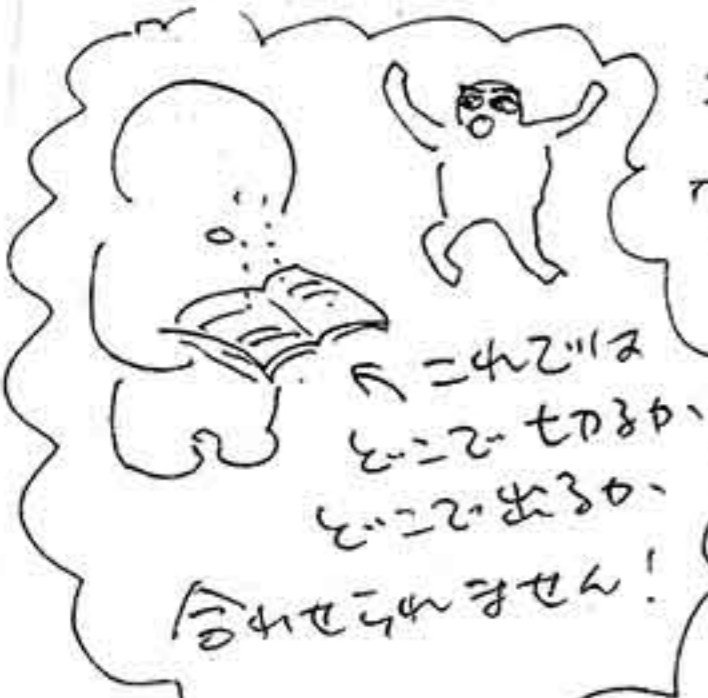 これでは
どこで切るか、
どこで出るか、
合わせられません!